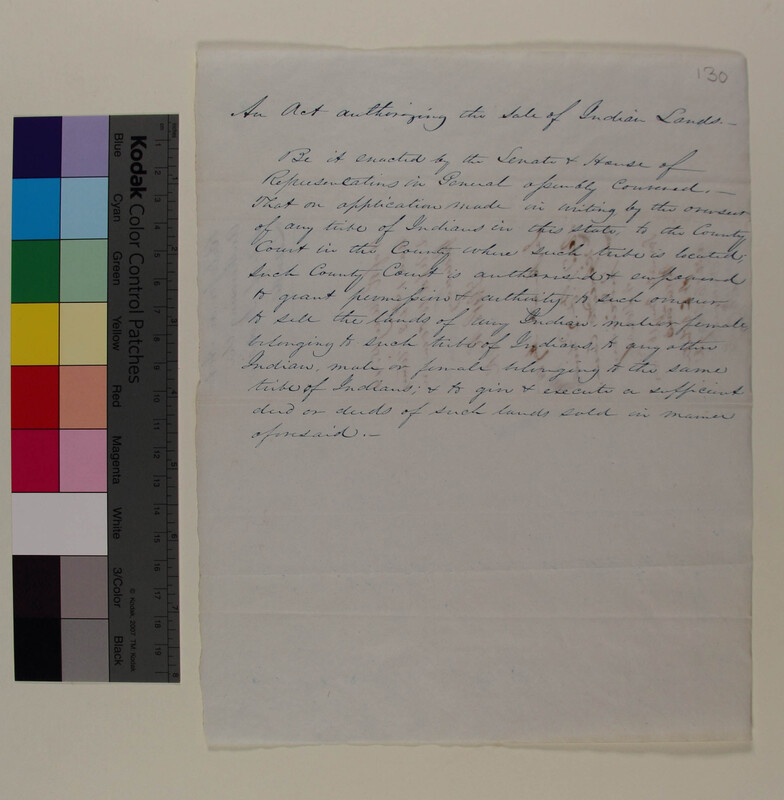 130
An Act authorizing the sale of Indian Lands.—
Be it enacted by the Senate & House of
Representatives in General assembly Convened.—
That on application made in writing by the overseer
of any tribe of Indians in the state, to the County
Court in the County where such tribe is located,
Such County Court is authorised & empowered
to grant permission & authority to such overseer
to sell the lands of any Indian, male or female
belonging to such tribe of Indians, to any other
Indian, male or female belonging to the same
tribe of Indians; & to give & execute a sufficient
deed or deeds of such lands sold in manner
aforesaid.—
Kodak Color Control Patches
Blue
Cyan
Green
Yellow
Red
Magenta
White
3/Color
Black
© Kodak, 2007 TM Kodak